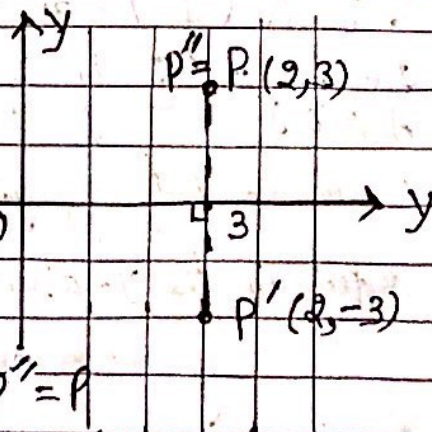 y
P″= P. (2,3)
0
3
y
P′ (2,-3)
P‴ = P